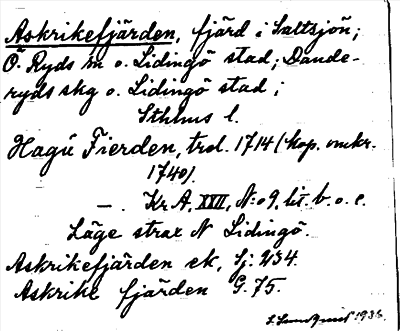 Askrikefjärden, fjärd i Saltsjön;
Ö. Ryds sn o. Lidingö stad; Dande-
ryds skg o. Lidingö stad i
Sthlms l.
Hagú Fierden, trol. 1714 (kop. omkr.
1740).
— . Kr A, XXII, N:o 9, lit. b. o. c.
Läge strax N Lidingö.
Askrikefjärden ek, Sj. 234.
Askrike fjärden G. 75.
1938.